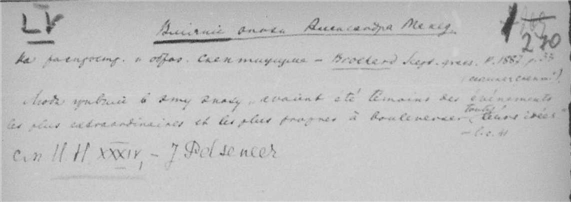 LV
Вліяніе эпохи Александра Макед.
1 270
на распростр. и образ. скептицизма – Brochard Scept. grecs. P. 1887 p.
Люди жившіе в эту эпоху, avaient été témoins des événements
les plus extraordinaires et les plus propres à bouleverser toutes leurs idées
l. c. 41
см H H XXXIV, – J Pelseneer